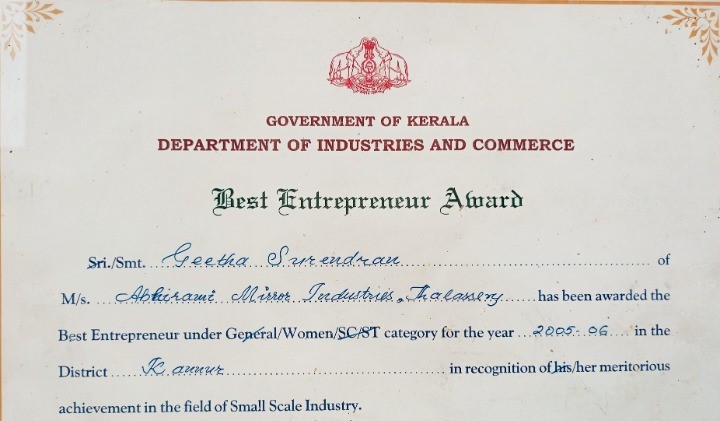 GOVERNMENT OF KERALA
DEPARTMENT OF INDUSTRIES AND COMMERCE
Best Entrepreneur Award
Sri./Smt. Geetha Surendran of
M/s. Abhirami Mirror Industries, Thalassery has been awarded the
Best Entrepreneur under General/Women/SC/ST category for the year 2005-06 in the
District Kannur in recognition of his/her meritorious
achievement in the field of Small Scale Industry.